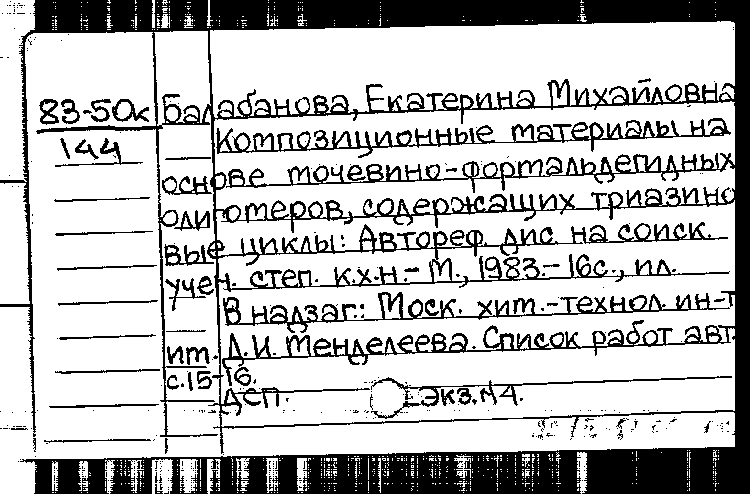 83-50к Балабанова, Екатерина Михайловна
144 Композиционные материалы на
основе мочевино-формальдегидных
олигомеров, содержащих триазино
вые циклы: Автореф. дис. на соиск.
учен. степ. к.х.н.- М., 1983.- 16с., ил.
В надзаг.: Моск. хим.-технол. ин-т
им. Д.И. Менделеева. Список работ авт.
с.15-16.
ДСП. ЭКЗ.№4.